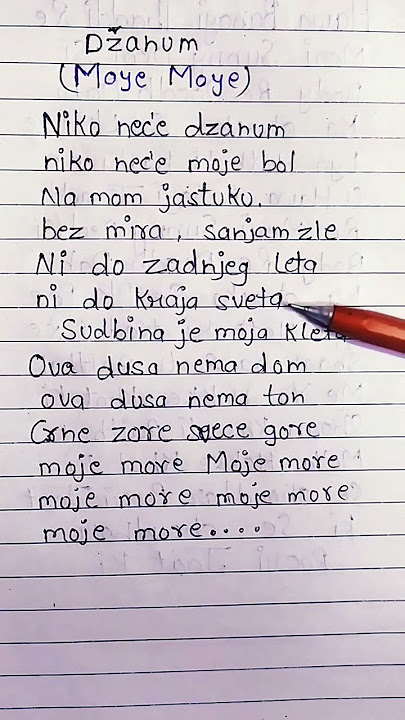 Džanum
(Moye Moye)
Niko neće dzanum
niko neće moje bol
Na mom jastuku.
bez mira, sanjam zle
Ni do zadnjeg leta
ni do kraja sveta
Sudbina je moja kleta
Ova dusa nema dom
ova dusa nema ton
Crne zore svece gore
moje more Moje more
moje more moje more
moje more....